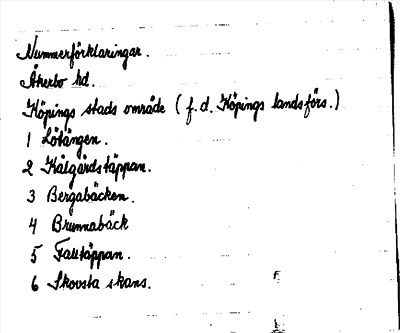 Nummerförklaringar.
Åkerbo hd.
Köpings stads område (f.d. Köpings landsförs.)
1 Lötängen.
2 Kålgårdstäppan.
3 Bergabäcken.
4 Brunnabäck
5 Falltäppan.
6 Skovsta skans.